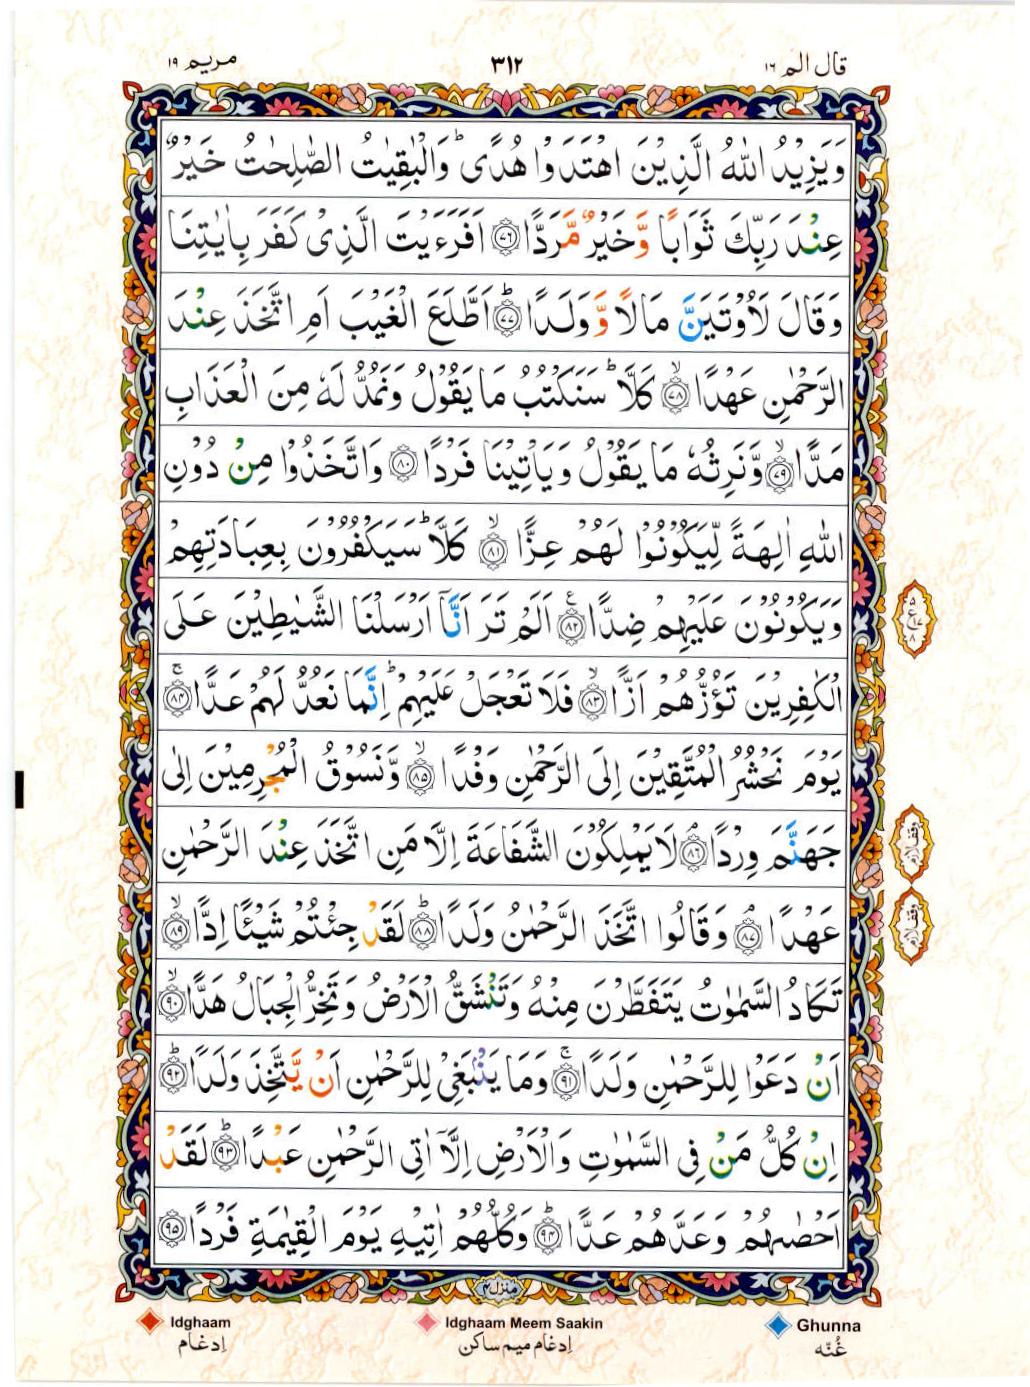 قال الم ١٦
٣١٢
مريم ١٩
وَيَزِيْدُ اللّٰهُ الَّذِيْنَ اهْتَدَوْا هُدًى ؕ وَالْبٰقِيٰتُ الصّٰلِحٰتُ خَيْرٌ
عِنْدَ رَبِّكَ ثَوَابًا وَّخَيْرٌ مَّرَدًّا ﴿٧٦﴾ اَفَرَءَيْتَ الَّذِيْ كَفَرَ بِاٰيٰتِنَا
وَقَالَ لَاُوْتَيَنَّ مَالًا وَّوَلَدًا ؕ﴿٧٧﴾ اَطَّلَعَ الْغَيْبَ اَمِ اتَّخَذَ عِنْدَ
الرَّحْمٰنِ عَهْدًا ۙ﴿٧٨﴾ كَلَّا ؕ سَنَكْتُبُ مَا يَقُوْلُ وَنَمُدُّ لَهٗ مِنَ الْعَذَابِ
مَدًّا ۙ﴿٧٩﴾ وَّنَرِثُهٗ مَا يَقُوْلُ وَيَاْتِيْنَا فَرْدًا ﴿٨٠﴾ وَاتَّخَذُوْا مِنْ دُوْنِ
اللّٰهِ اٰلِهَةً لِّيَكُوْنُوْا لَهُمْ عِزًّا ۙ﴿٨١﴾ كَلَّا ؕ سَيَكْفُرُوْنَ بِعِبَادَتِهِمْ
وَيَكُوْنُوْنَ عَلَيْهِمْ ضِدًّا ﴿٨٢﴾ ع اَلَمْ تَرَ اَنَّاۤ اَرْسَلْنَا الشَّيٰطِيْنَ عَلَى
الْكٰفِرِيْنَ تَؤُزُّهُمْ اَزًّا ۙ﴿٨٣﴾ فَلَا تَعْجَلْ عَلَيْهِمْ ؕ اِنَّمَا نَعُدُّ لَهُمْ عَدًّا ۚ﴿٨٤﴾
يَوْمَ نَحْشُرُ الْمُتَّقِيْنَ اِلَى الرَّحْمٰنِ وَفْدًا ۙ﴿٨٥﴾ وَّنَسُوْقُ الْمُجْرِمِيْنَ اِلٰى
جَهَنَّمَ وِرْدًا ۘ﴿٨٦﴾ لَا يَمْلِكُوْنَ الشَّفَاعَةَ اِلَّا مَنِ اتَّخَذَ عِنْدَ الرَّحْمٰنِ
عَهْدًا ۘ﴿٨٧﴾ وَقَالُوا اتَّخَذَ الرَّحْمٰنُ وَلَدًا ؕ﴿٨٨﴾ لَقَدْ جِئْتُمْ شَيْـًٔا اِدًّا ۙ﴿٨٩﴾
تَكَادُ السَّمٰوٰتُ يَتَفَطَّرْنَ مِنْهُ وَتَنْشَقُّ الْاَرْضُ وَتَخِرُّ الْجِبَالُ هَدًّا ۙ﴿٩٠﴾
اَنْ دَعَوْا لِلرَّحْمٰنِ وَلَدًا ۚ﴿٩١﴾ وَمَا يَنْۢبَغِيْ لِلرَّحْمٰنِ اَنْ يَّتَّخِذَ وَلَدًا ؕ﴿٩٢﴾
اِنْ كُلُّ مَنْ فِي السَّمٰوٰتِ وَالْاَرْضِ اِلَّاۤ اٰتِي الرَّحْمٰنِ عَبْدًا ؕ﴿٩٣﴾ لَقَدْ
اَحْصٰىهُمْ وَعَدَّهُمْ عَدًّا ؕ﴿٩٤﴾ وَكُلُّهُمْ اٰتِيْهِ يَوْمَ الْقِيٰمَةِ فَرْدًا ﴿٩٥﴾
وقف لازم
وقف لازم
منزل ٤
Idghaam
Idghaam Meem Saakin
Ghunna
إدغام
إدغام ميم ساكن
غُنّه